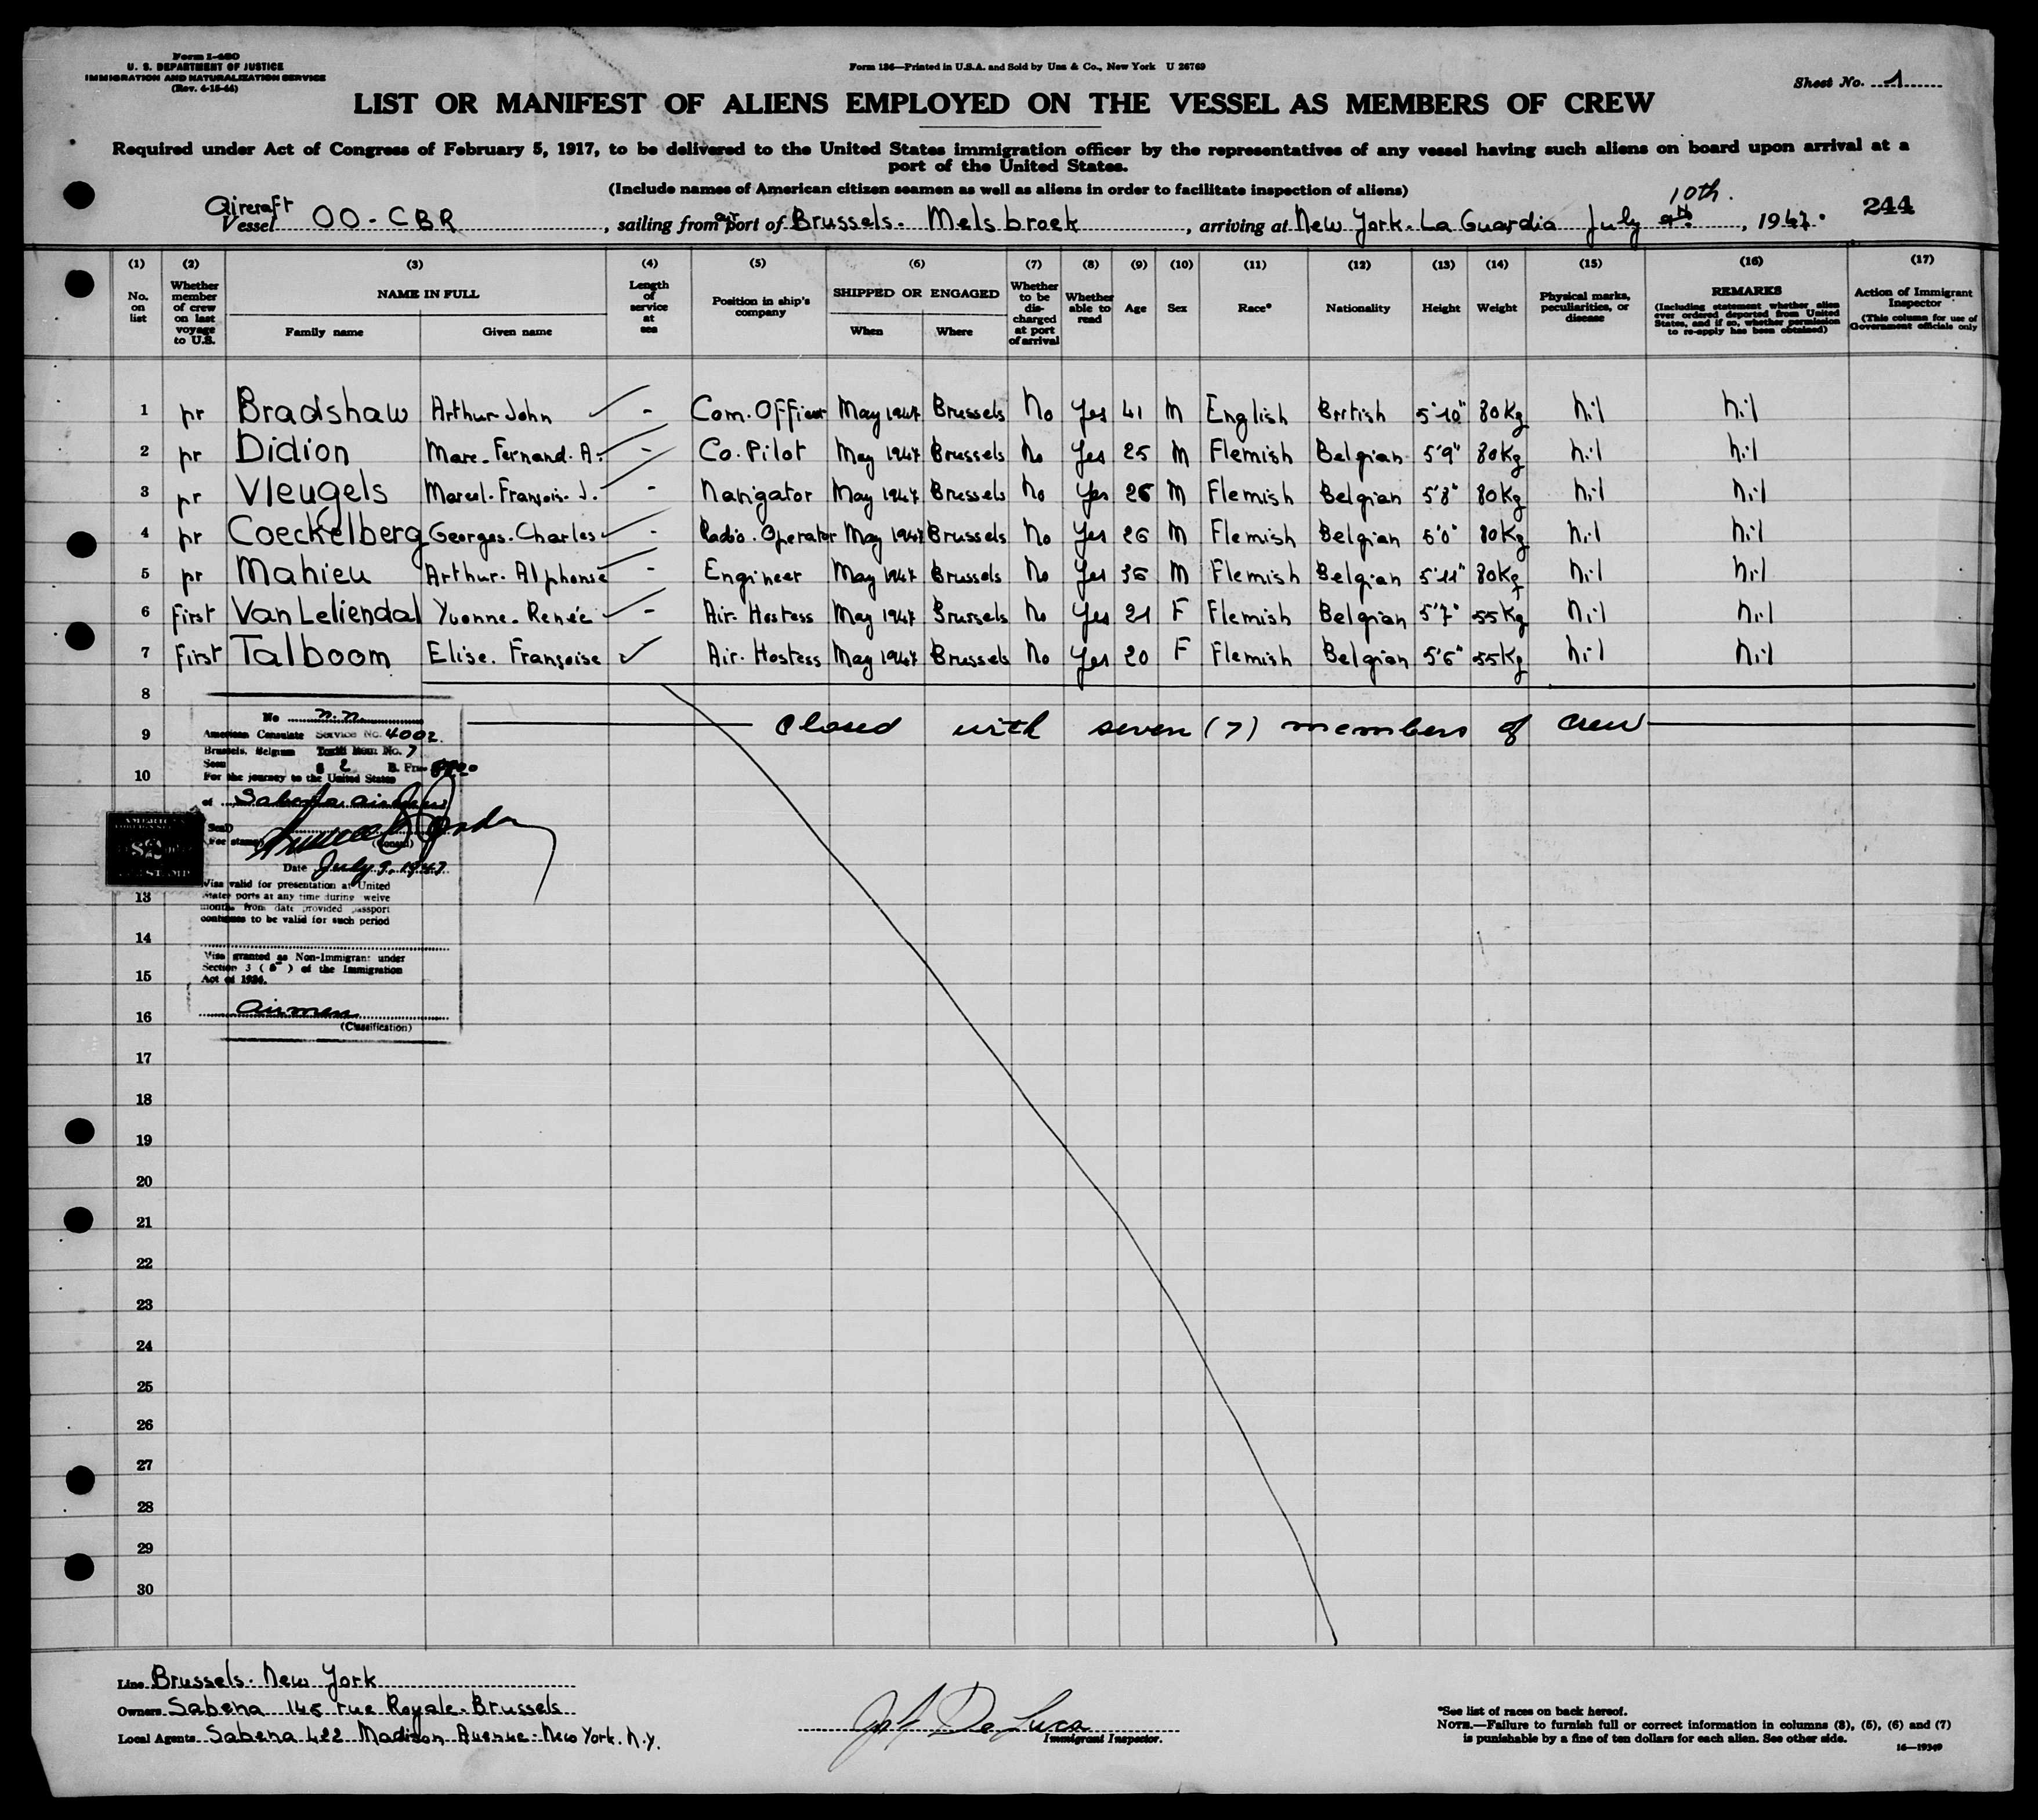 Form I-480
U. S. DEPARTMENT OF JUSTICE
IMMIGRATION AND NATURALIZATION SERVICE
(Rev. 4-15-44)
Form 136—Printed in U.S.A. and Sold by Unz & Co., New York U 26769
Sheet No. 1
LIST OR MANIFEST OF ALIENS EMPLOYED ON THE VESSEL AS MEMBERS OF CREW
Required under Act of Congress of February 5, 1917, to be delivered to the United States immigration officer by the representatives of any vessel having such aliens on board upon arrival at a
port of the United States.
(Include names of American citizen seamen as well as aliens in order to facilitate inspection of aliens)
Aircraft
10th.
Vessel OO-CBR, sailing from air port of Brussels. Melsbroek, arriving at New York. La Guardia July 9th, 1947. 244
(1) (2) (3) (4) (5) (6) (7) (8) (9) (10) (11) (12) (13) (14) (15) (16) (17)
No. on list
Whether member of crew on last voyage to U.S.
NAME IN FULL
Family name
Given name
Length of service at sea
Position in ship's company
SHIPPED OR ENGAGED
When
Where
Whether to be discharged at port of arrival
Whether able to read
Age
Sex
Race*
Nationality
Height
Weight
Physical marks, peculiarities, or disease
REMARKS
(Including statement whether alien ever ordered deported from United States, and if so, whether permission to re-apply has been obtained)
Action of Immigrant Inspector
(This column for use of Government officials only
1 pr Bradshaw Arthur John - Com. Officer May 1947 Brussels No Yes 41 M English British 5'10" 80Kg nil nil
2 pr Didion Marc. Fernand. A. - Co. Pilot May 1947 Brussels No Yes 25 M Flemish Belgian 5'9" 80Kg nil nil
3 pr Vleugels Marcel. François. J. - Navigator May 1947 Brussels No Yes 26 M Flemish Belgian 5'8" 80Kg nil nil
4 pr Coeckelberg Georges. Charles - Radio. Operator May 1947 Brussels No Yes 26 M Flemish Belgian 6'0" 80Kg nil nil
5 pr Mahieu Arthur. Alphonse - Engineer May 1947 Brussels No Yes 36 M Flemish Belgian 5'11" 80Kg nil nil
6 First Van Leliendal Yvonne. Renée - Air. Hostess May 1947 Brussels No Yes 21 F Flemish Belgian 5'7" 55Kg nil nil
7 First Talboom Elise. Françoise Air. Hostess May 1947 Brussels No Yes 20 F Flemish Belgian 5'6" 55Kg nil nil
8
9 closed with seven (7) members of crew
10
13
14
15
16
17
18
19
20
21
22
23
24
25
26
27
28
29
30
No n.n.
American Consulate Service No. 4002.
Brussels, Belgium Tariff Item No. 7
Seen $ 2 B. Frs.
For the journey to the United States
of Sabena
Seal
Fee stamp
(Consul)
Date July 9, 1947
Visa valid for presentation at United
States ports at any time during twelve
months from date provided passport
continues to be valid for such period
Visa granted as Non-Immigrant under
Section 3 (5) of the Immigration
Act of 1924.
Airmen
(Classification)
Line Brussels. New York
Owners Sabena 145 rue Royale. Brussels
Local Agents Sabena 422 Madison Avenue. New York. N.Y.
Jos A De Luca
Immigrant Inspector.
*See list of races on back hereof.
NOTE.—Failure to furnish full or correct information in columns (3), (5), (6) and (7)
is punishable by a fine of ten dollars for each alien. See other side.
16—19349